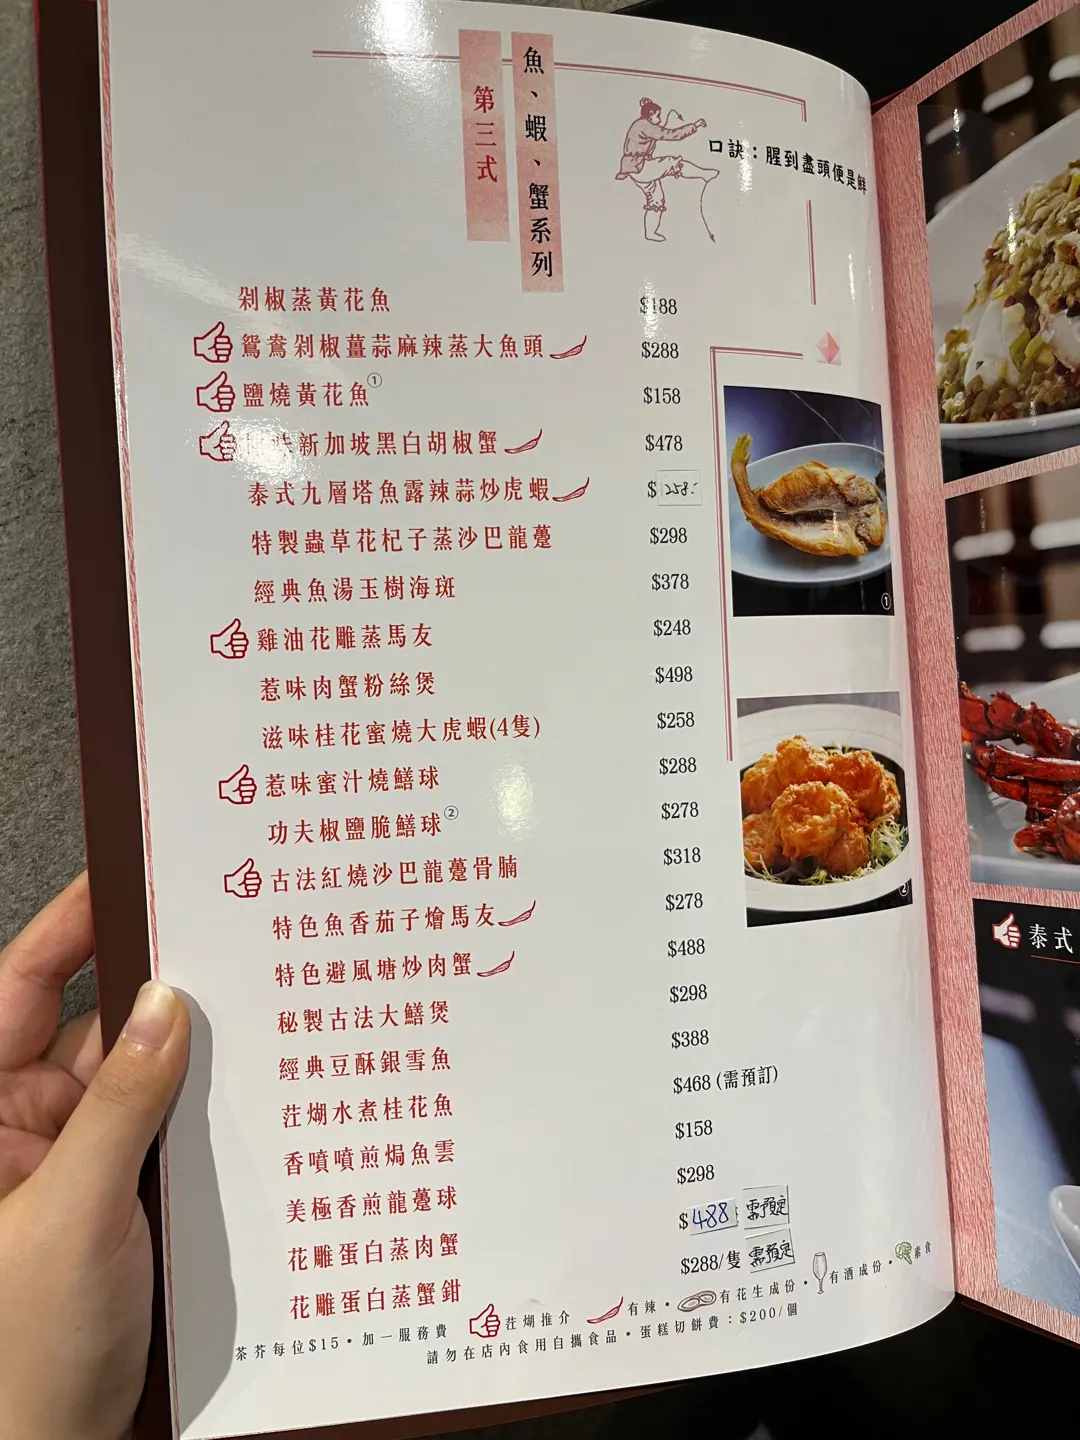 第三式
魚、蝦、蟹系列
口訣：腥到盡頭便是鮮
剁椒蒸黃花魚 $188
鴛鴦剁椒薑蒜麻辣蒸大魚頭 $288
鹽燒黃花魚① $158
新加坡黑白胡椒蟹 $478
泰式九層塔魚露辣蒜炒虎蝦 $258-
特製蟲草花杞子蒸沙巴龍躉 $298
經典魚湯玉樹海斑 $378
雞油花雕蒸馬友 $248
惹味肉蟹粉絲煲 $498
滋味桂花蜜燒大虎蝦(4隻) $258
惹味蜜汁燒鱔球 $288
功夫椒鹽脆鱔球② $278
古法紅燒沙巴龍躉骨腩 $318
特色魚香茄子燴馬友 $278
特色避風塘炒肉蟹 $488
秘製古法大鱔煲 $298
經典豆酥銀雪魚 $388
茳煳水煮桂花魚 $468 (需預訂)
香噴噴煎焗魚雲 $158
美極香煎龍躉球 $298
花雕蛋白蒸肉蟹 $488 需預定
花雕蛋白蒸蟹鉗 $288/隻 需預定
①
②
茳煳推介 有辣 • 有花生成份 • 有酒成份 • 素食
茶芥每位$15 • 加一服務費
請勿在店內食用自攜食品 • 蛋糕切餅費：$200/個
泰式